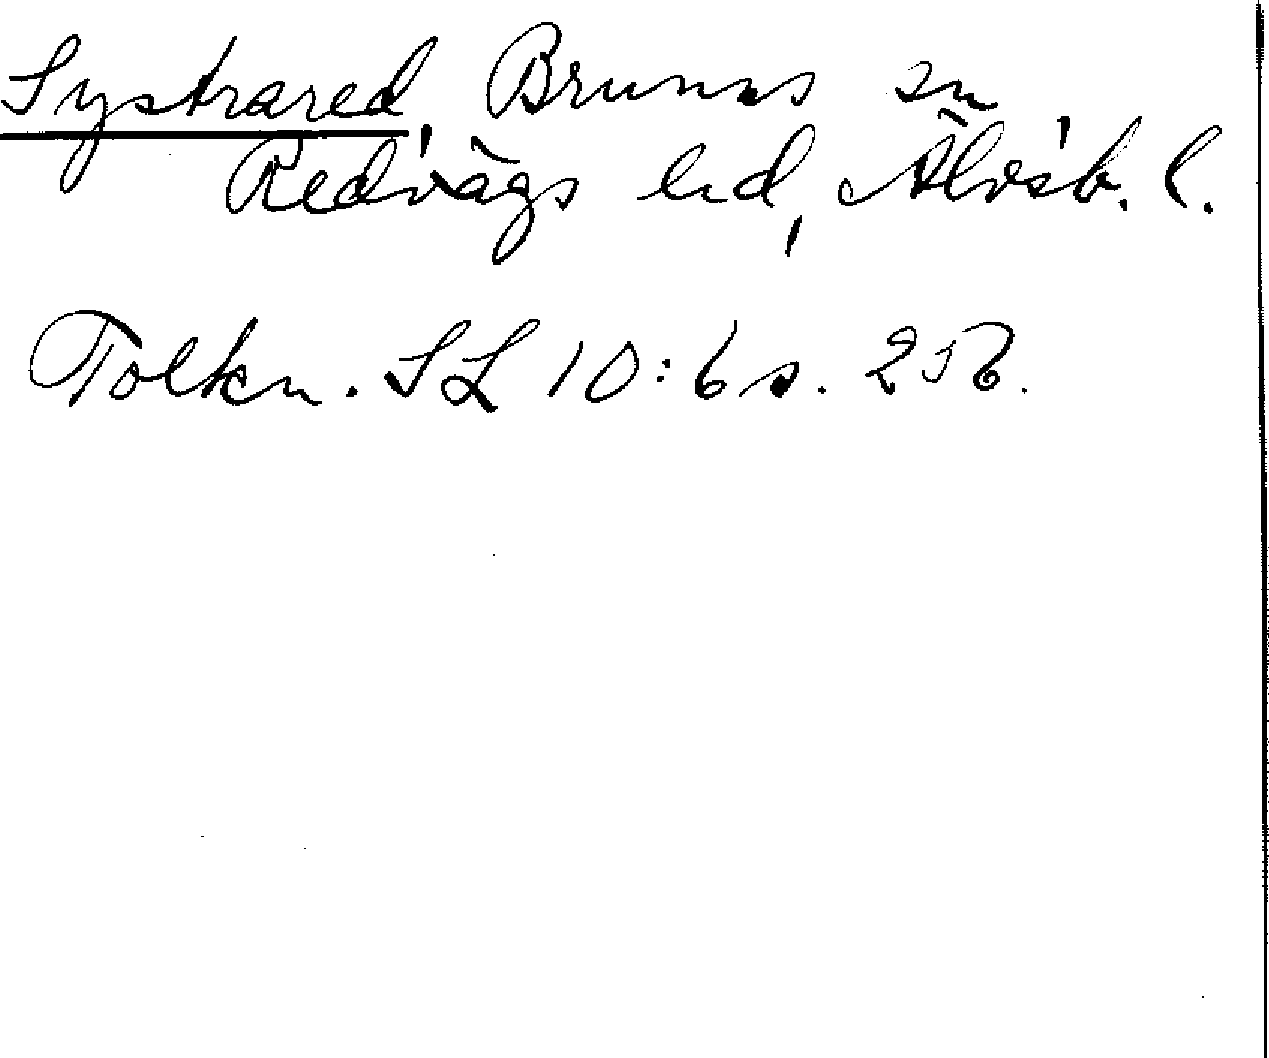 Systrared, Brunns sn
Redvägs hd, Älvsb. l.
Tolkn. SL 10:6 s. 256.